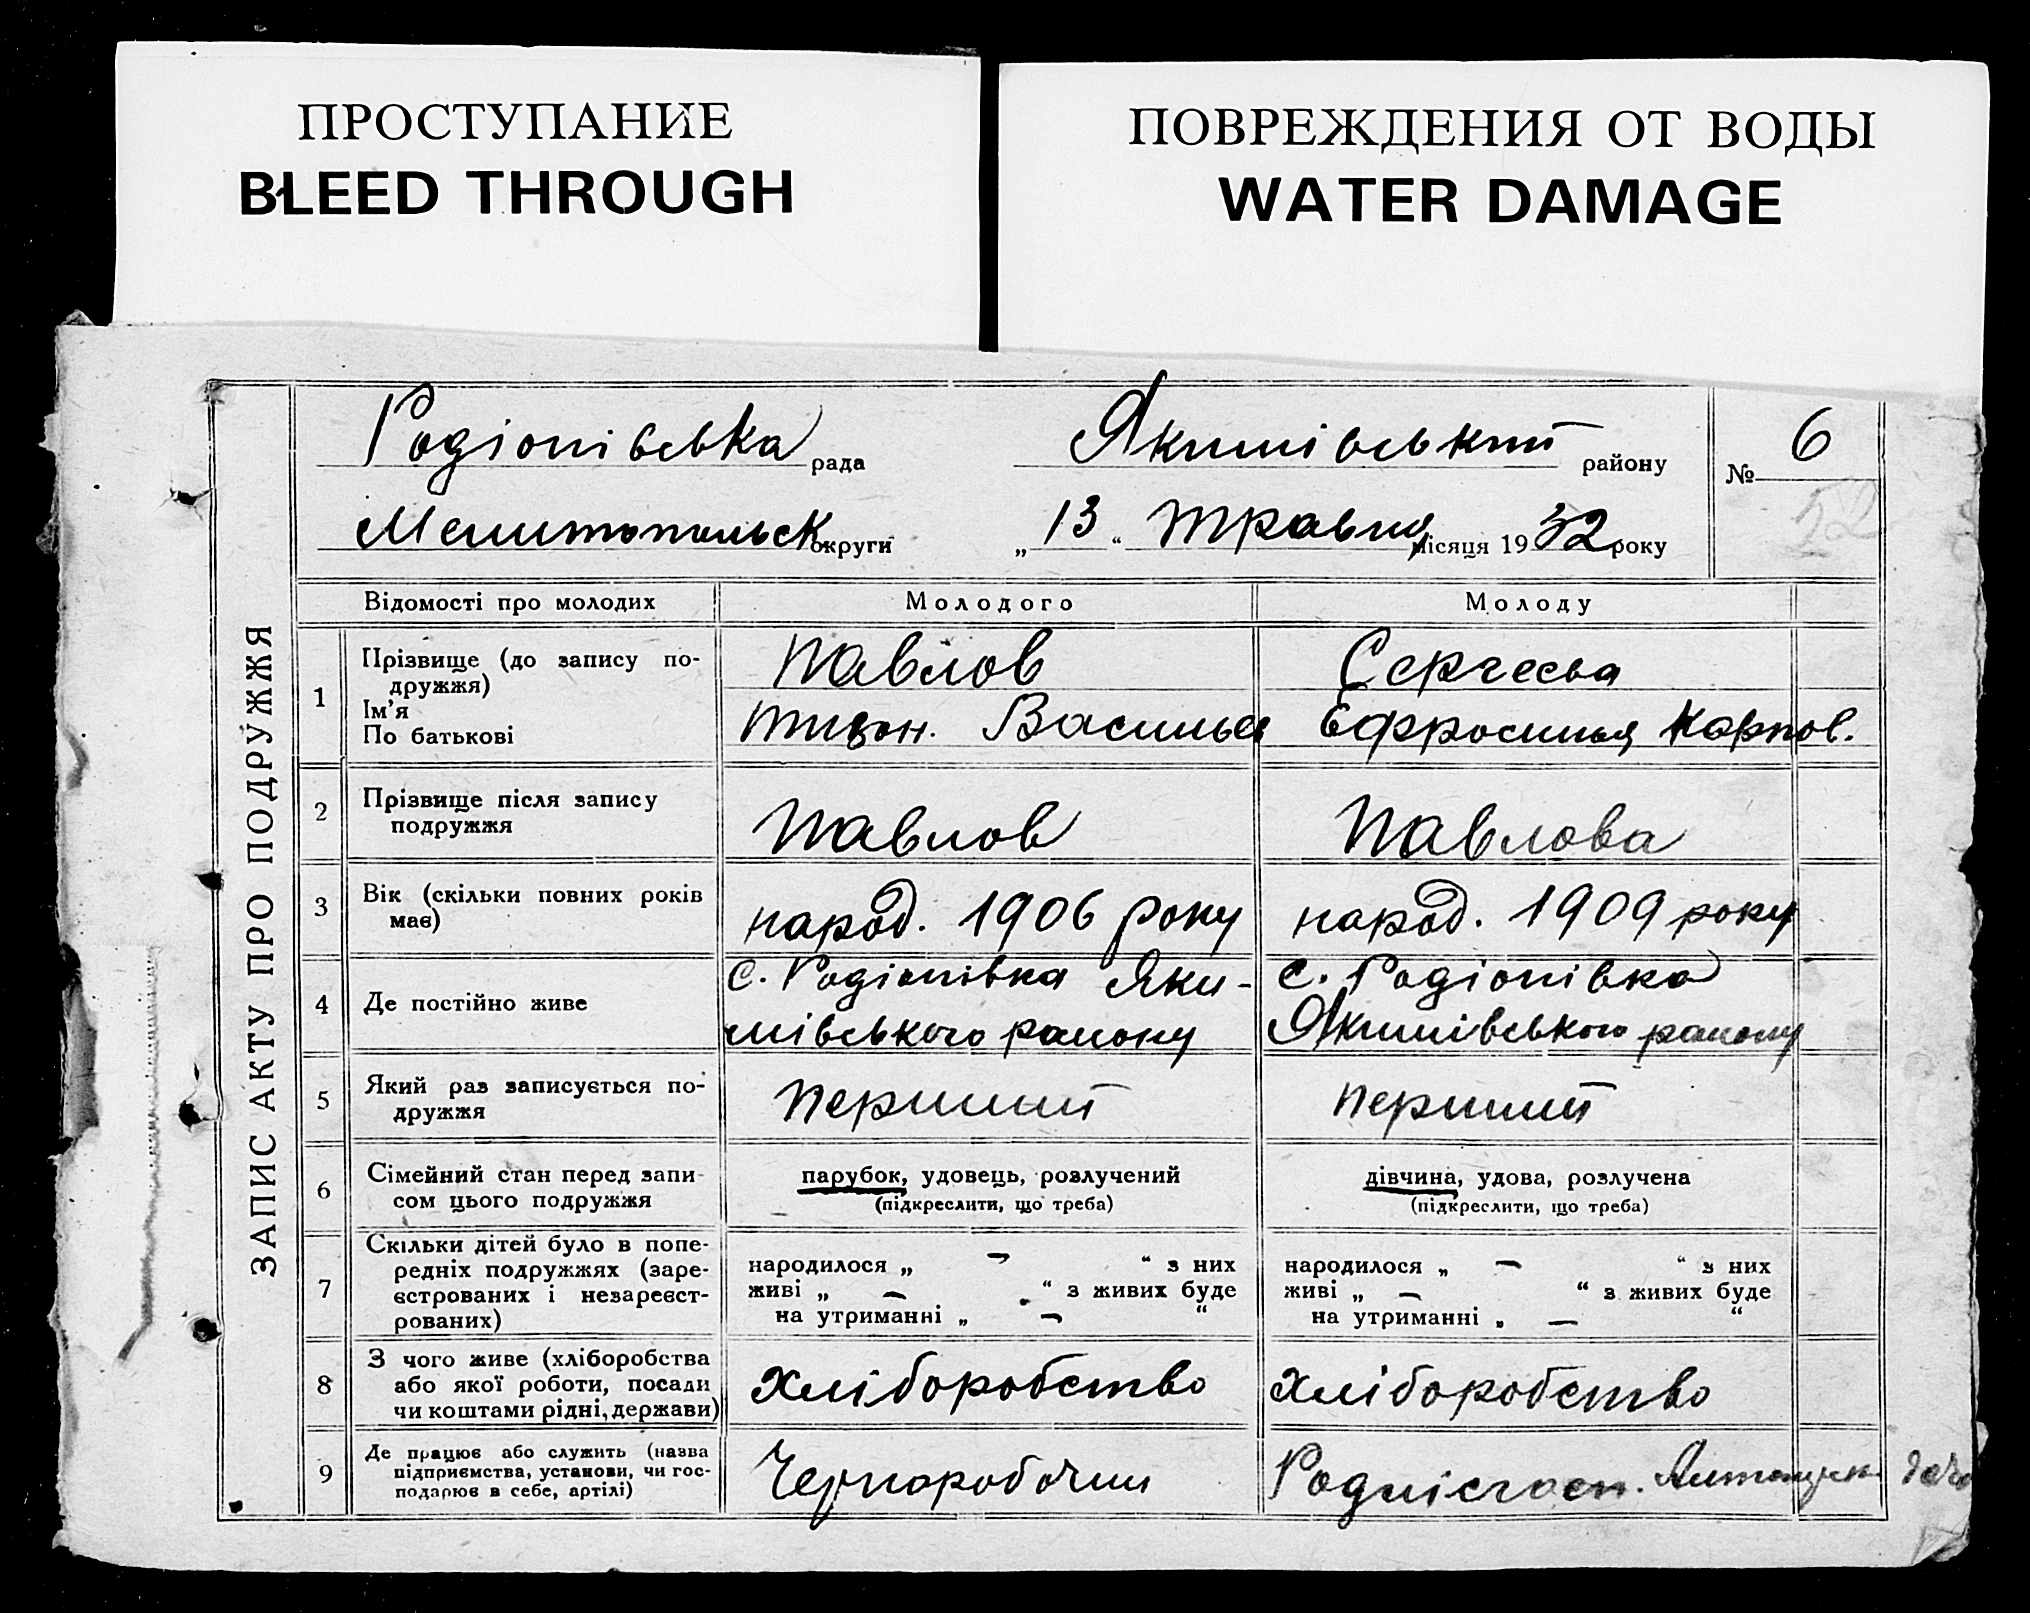 ПРОСТУПАНИЕ
BLEED THROUGH
ПОВРЕЖДЕНИЯ ОТ ВОДЫ
WATER DAMAGE
ЗАПИС АКТУ ПРО ПОДРУЖЖЯ
Родіонівська рада Якимівський району № 6
Мелитопольськ округи „13“ травня місяця 1932 року
Відомості про молодих Молодого Молоду
1 Прізвище (до запису по-
дружжя)
Ім'я
По батькові
Павлов
Тихон. Васильев
Сергеева
Ефросинья Карпов.
2 Прізвище після запису
подружжя
Павлов Павлова
3 Вік (скільки повних років
має)
народ. 1906 року народ. 1909 року
4 Де постійно живе
с. Родіонівка Яки-
мівського району
с. Родіонівка
Якимівського району
5 Який раз записується по-
дружжя
перший перший
6 Сімейний стан перед запи-
сом цього подружжя
парубок, удовець, розлучений
(підкреслити, що треба)
дівчина, удова, розлучена
(підкреслити, що треба)
7 Скільки дітей було в попе-
редніх подружжях (заре-
єстрованих і незареєст-
рованих)
народилося „ — “ з них
живі „ — “ з живих буде
на утриманні „ — “
народилося „ — “ з них
живі „ — “ з живих буде
на утриманні „ — “
8 З чого живе (хліборобства
або якої роботи, посади
чи коштами рідні, держави)
хліборобство хліборобство
9 Де працює або служить (назва
підприємства, установи, чи гос-
подарює в себе, артілі)
Чернорабочий